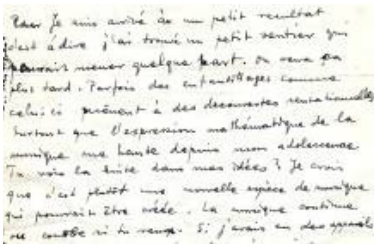 hier je suis arrivé à un petit resultat
c'est à dire j'ai trouvé un petit sentier qui
pourrait mener quelque part. on verra ça
plus tard. Parfois des enfantillages comme
celui ci mènent à des decouvertes sensationnelles
surtout que l'expression mathématique de la
musique me hante depuis mon adolescence
Tu vois la suite dans mes idées? Je crois
que c'est plutôt une nouvelle espèce de musique
qui pourrait être créée. La musique continue
ou courbe si tu veux. Si j'avais eu des appareils